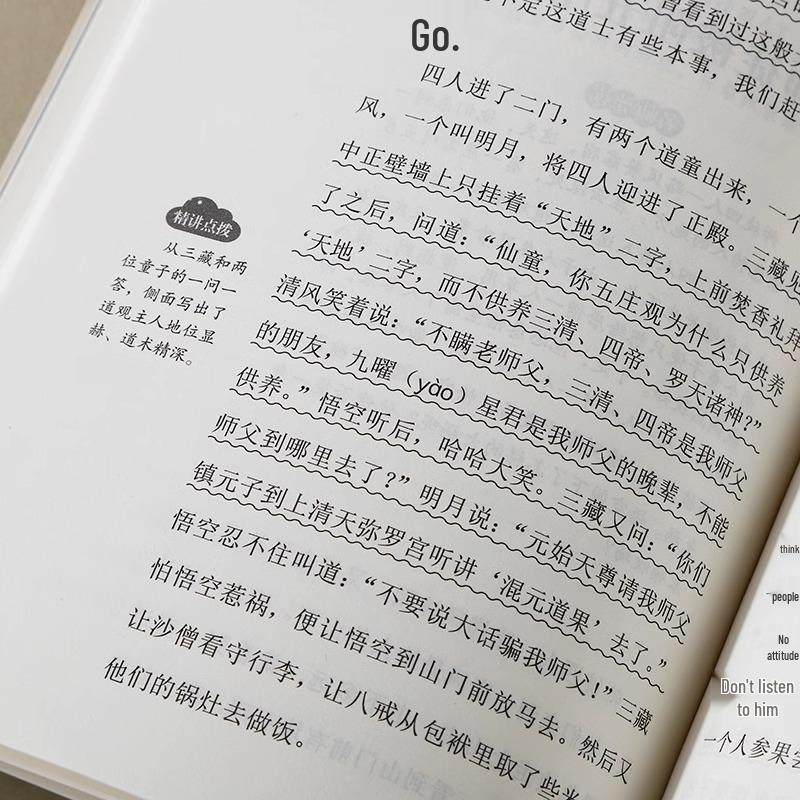 Go.
曾看到过这般
不定这道士有些本事，我们赶
四人进了二门，有两个道童出来，一个
风，一个叫明月，将四人迎进了正殿。三藏见
中正壁墙上只挂着“天地”二字，上前焚香礼拜
了之后，问道：“仙童，你五庄观为什么只供养
‘天地’二字，而不供养三清、四帝、罗天诸神？”
清风笑着说：“不瞒老师父，三清、四帝是我师父
的朋友，九曜（yào）星君是我师父的晚辈，不能
供养。”悟空听后，哈哈大笑。三藏又问：“你们
师父到哪里去了？”明月说：“元始天尊请我师父
镇元子到上清天弥罗宫听讲‘混元道果’去了。”
悟空忍不住叫道：“不要说大话骗我师父！”三藏
怕悟空惹祸，便让悟空到山门前放马去。然后又
让沙僧看守行李，让八戒从包袱里取了些米
他们的锅灶去做饭。
精讲点拨
从三藏和两
位童子的一问一
答，侧面写出了
道观主人地位显
赫、道术精深。
think
people
No
attitude
Don't listen
to him
一个人参果